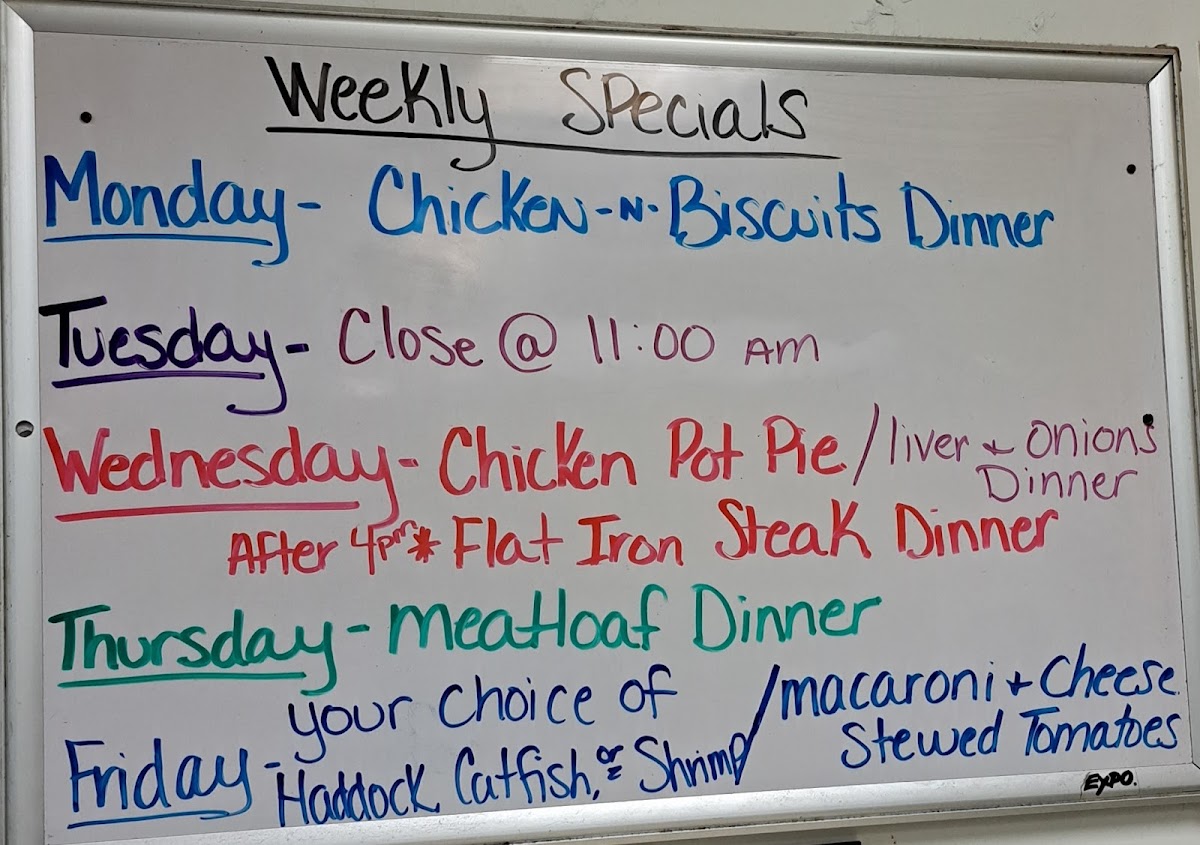 Weekly Specials
Monday- Chicken-N-Biscuits Dinner
Tuesday- Close @ 11:00 AM
Wednesday- Chicken Pot Pie / liver + onions
Dinner
After 4pm* Flat Iron Steak Dinner
Thursday- meatloaf Dinner
your choice of / macaroni + Cheese
Friday- Haddock, Catfish, or Shrimp Stewed Tomatoes
EXPO.